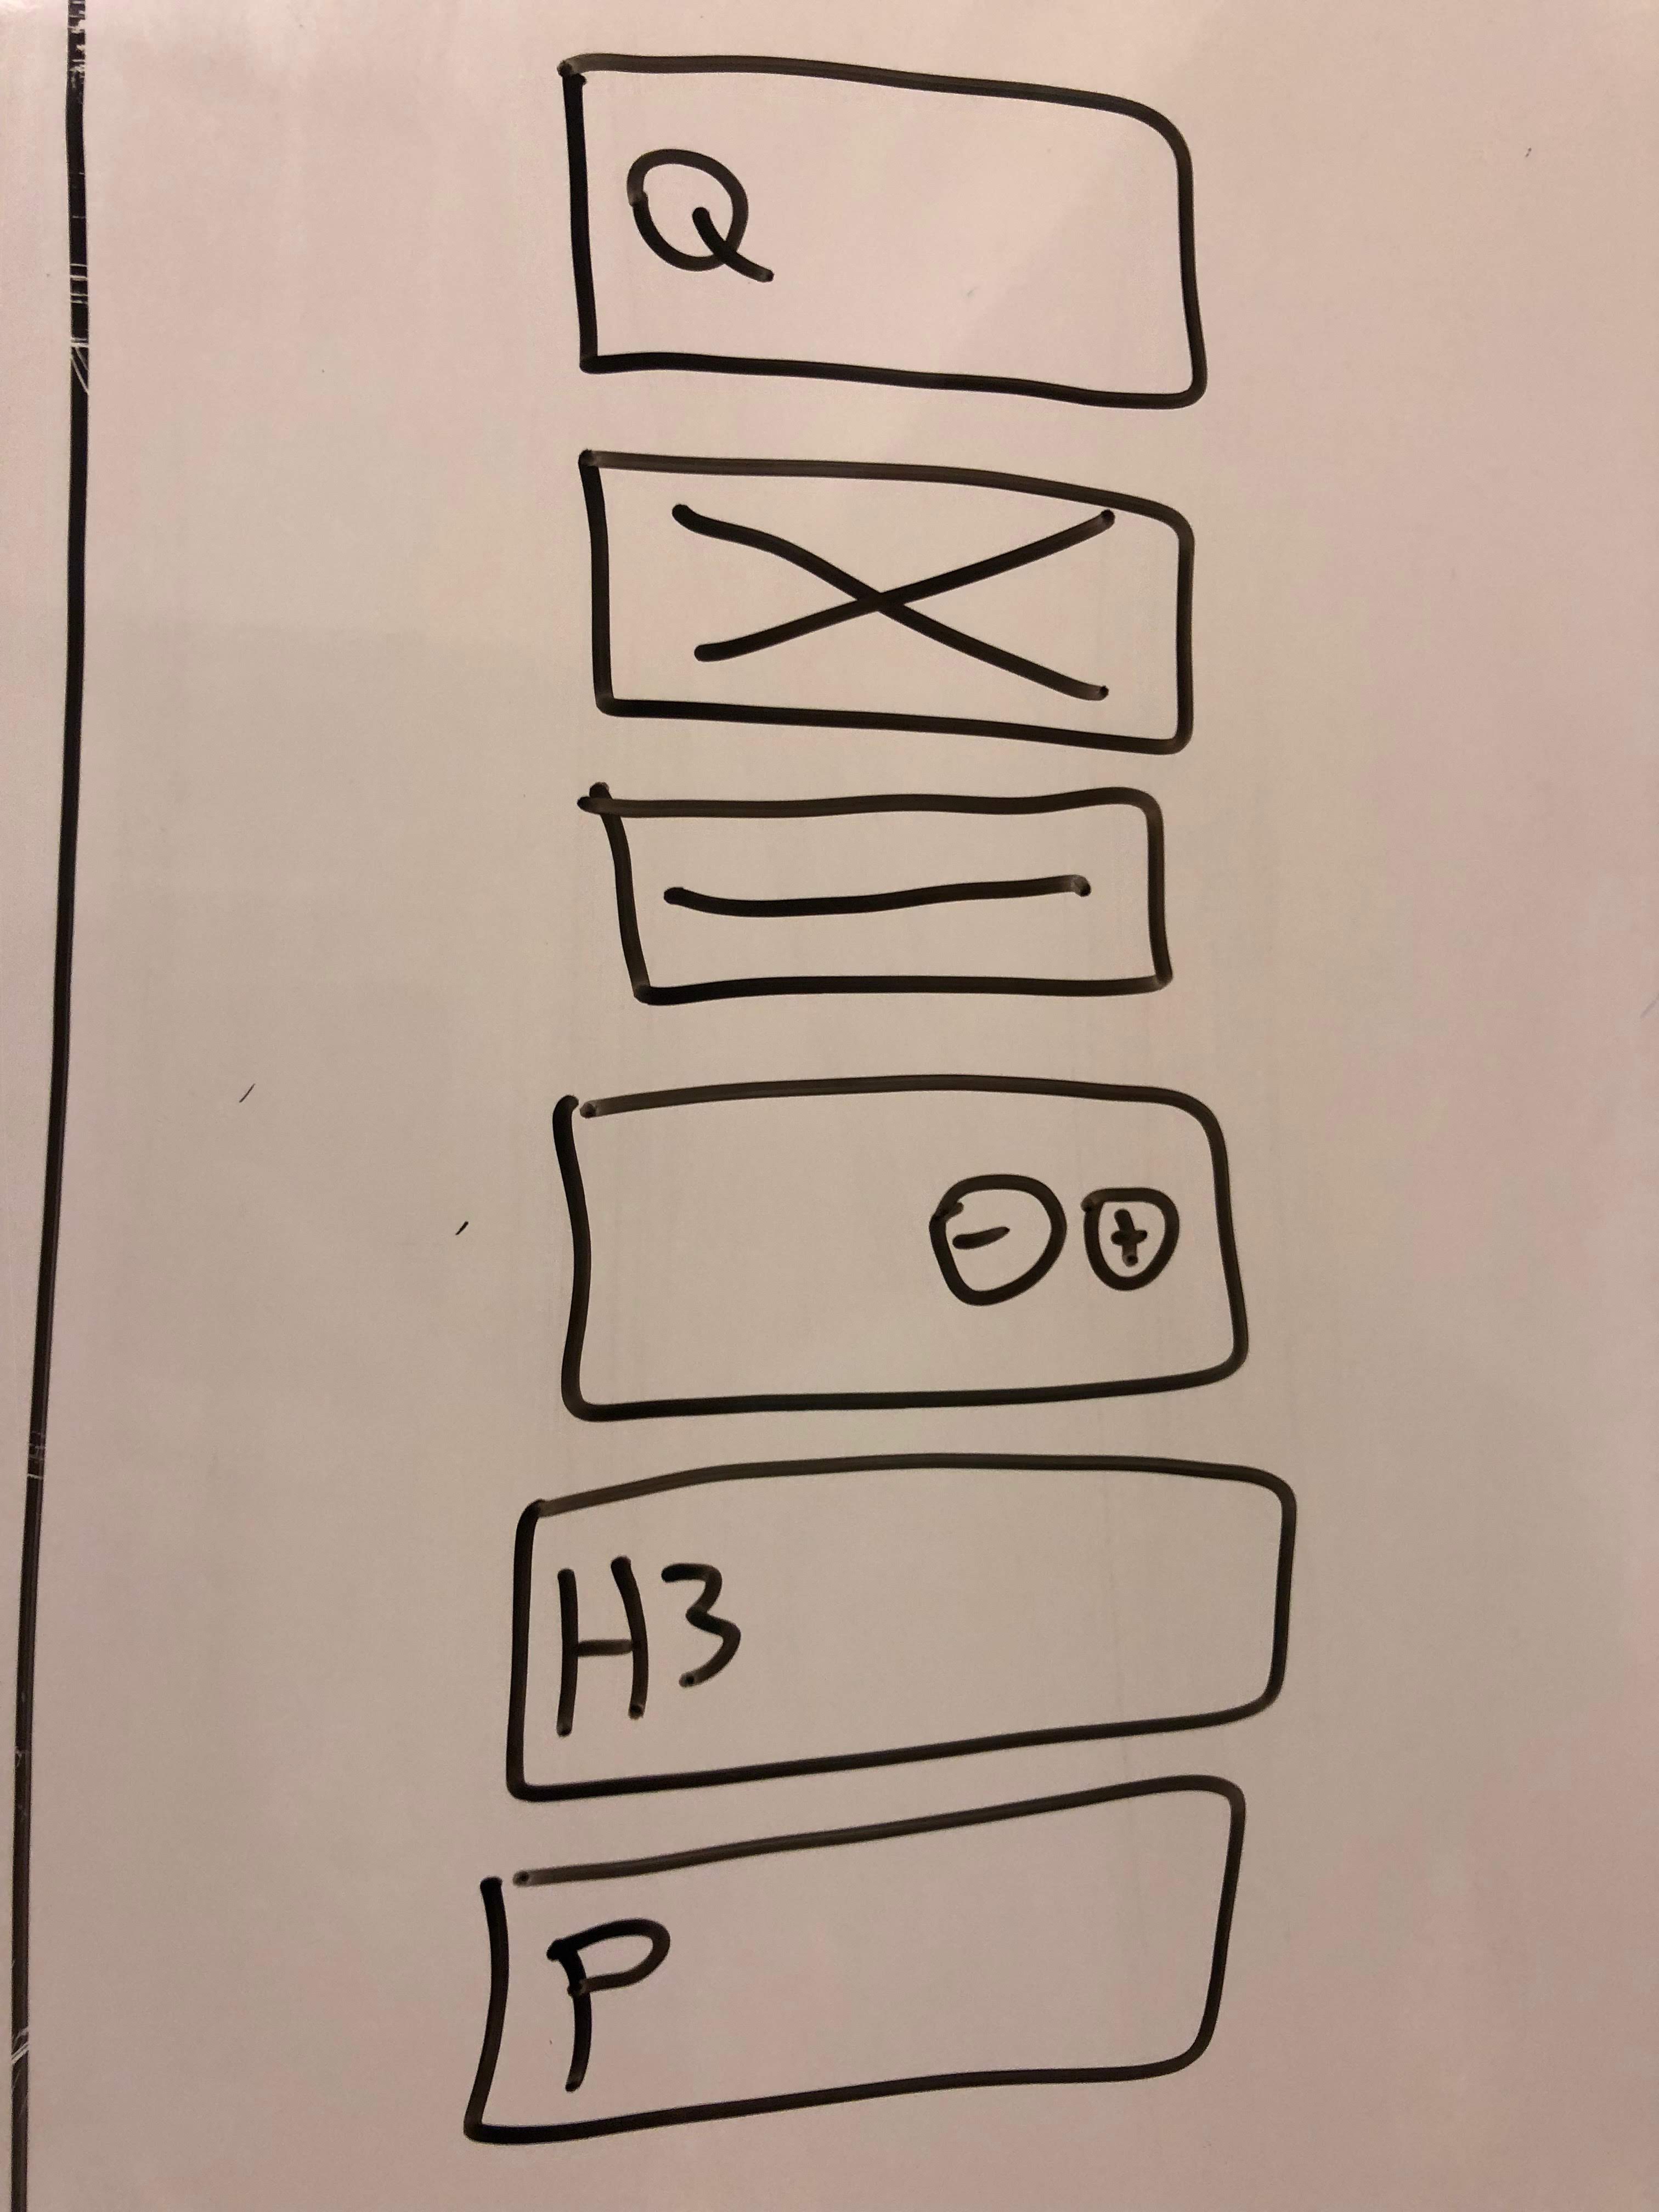 Q
- +
H3
P